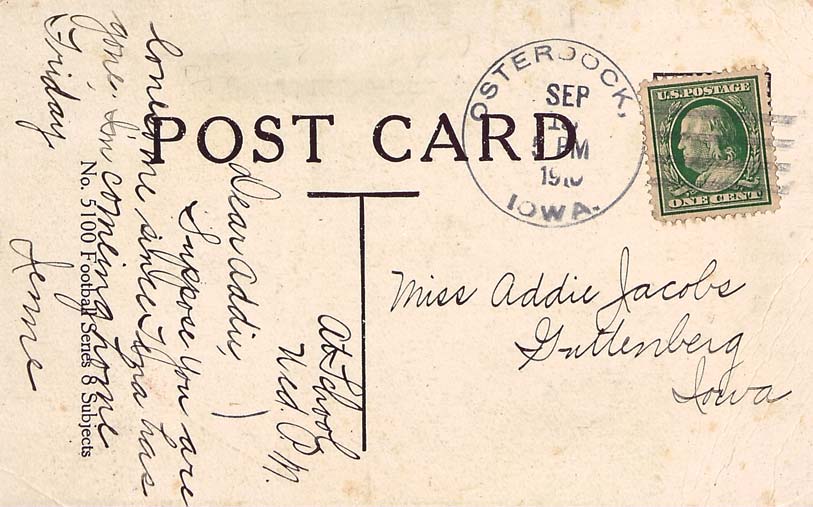 POST CARD
OSTERDOCK,
SEP
PM
1910
IOWA.
U.S. POSTAGE
ONE CENT
Miss Addie Jacobs
Guttenberg
Iowa
At School
Wed. P.M.
Dear Addie,
Suppose you are
lonesome since Lena has
gone. I'm comeing home
Friday
Jenne
No. 5100 Football Series 8 Subjects